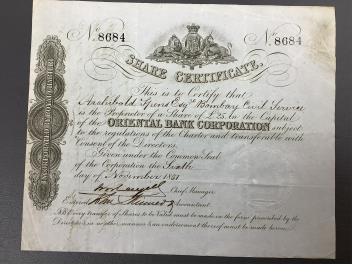 No. 8684 No. 8684
SHARE CERTIFICATE.
This is to Certify that
Archibald Spens Esqre Bombay Civil Service
is the Proprietor of a Share of £25 in the Capital
of the ORIENTAL BANK CORPORATION subject
to the regulations of the Charter and transferable with
Consent of the Directors.
Given under the Common Seal
of the Corporation the Sixth
day of November 1851
Chief Manager
Entered Accountant
N.B. Every transfer of Shares to be Valid must be made in the form prescribed by the
Directors, in no other manner & no endorsement thereof must be made hereon.